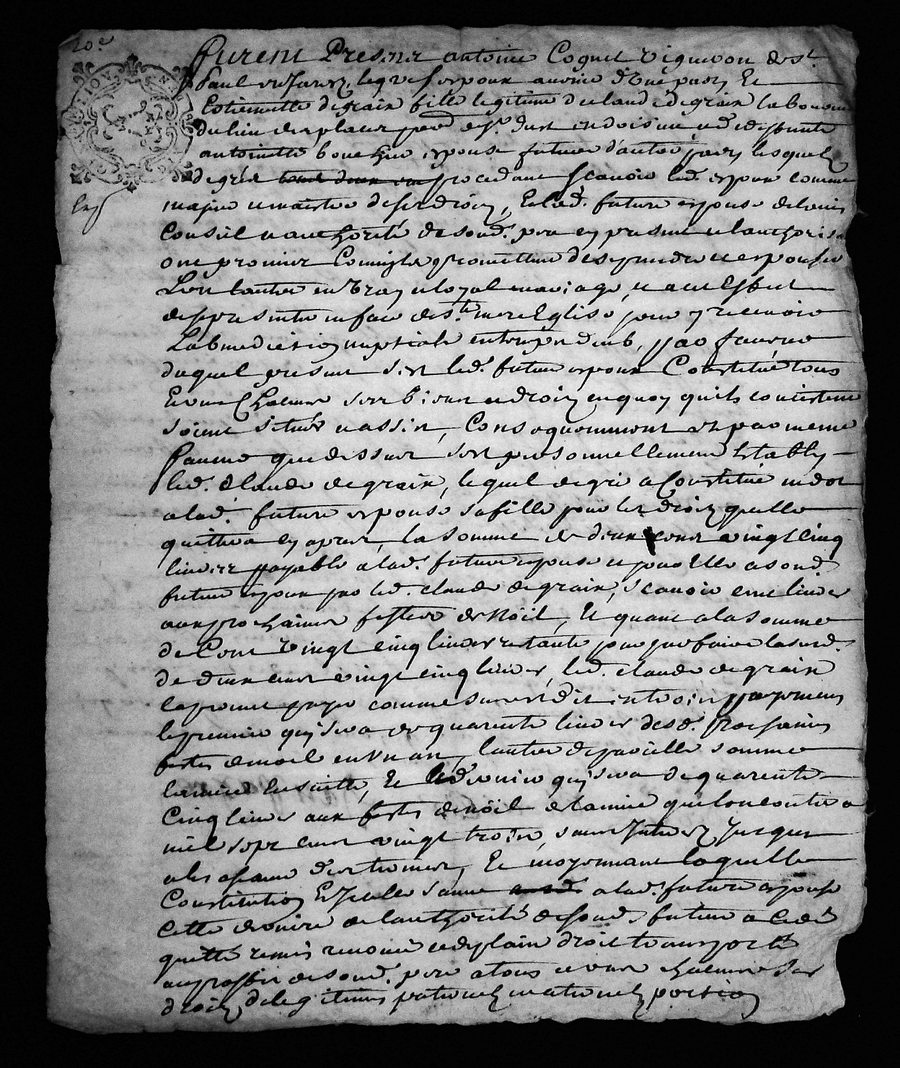 20e
furent Presens antoine Coquet vigneron de St
Paul en Jarez lequel espoux avenir d'une part, Et
Estiennette degraix fille legitime de claude degraix laboureur
du lieu de et de deffunte
antoinette espouse future d'autre part, lesquels
de gré procedant scavoir led. espoux comme
majeur et maitre de ses droits, Et lad. future espouse de lavis
Conseil et authorité de sond. pere icy present et lauthorisant
ont promis se prendre et espouser
L'un lautre en vray et loyal mariage, et a cet effect
se presenter en face de Ste mere Eglise pour y recevoir
La benediction nuptiale en faveur
duquel present led. futur espoux Constitue tous
Et uns Chacuns ses biens et droits en quoy quils consistent
soient situés et assis, Consequemment et par meme
faveur que dessus sest personnellement Estably
led. claude degraix, lequel de gré a Constitué en dot
a lad. future espouse sa fille pour les droits quelle
quittera cy apres, la somme de deux cent vingt cinq
livres payable a lad. future espouse et par Elle a sond.
futur espoux par led. claude degraix, scavoir cent livres
aux prochaines festes de Noël, Et quant a la somme
de Cent vingt cinq livres restante pour parfaire lasusd.
de deux cent vingt cinq livres, led. claude degraix
promet payer comme susdit en trois payemens
le premier qui sera de quarante livres desd. Prochaines
festes de noel en un an, lautre de pareille somme
lannée Ensuitte, Et le dernier qui sera de quarante
Cinq livres aux festes de noël de lannée que lon contera
mil sept cent vingt trois, sans Interest Jusques
a lescheance des termes, Et moyennant laquelle
Constitution Et Icelle somme a lad. future espouse
cette derniere de lauthorité de sond. futur a cedé
quitté remis renoncé et de plain droit transporté
au proffit de sond. pere a tous et uns chacuns ses
droits de legitimes paternels maternels portion